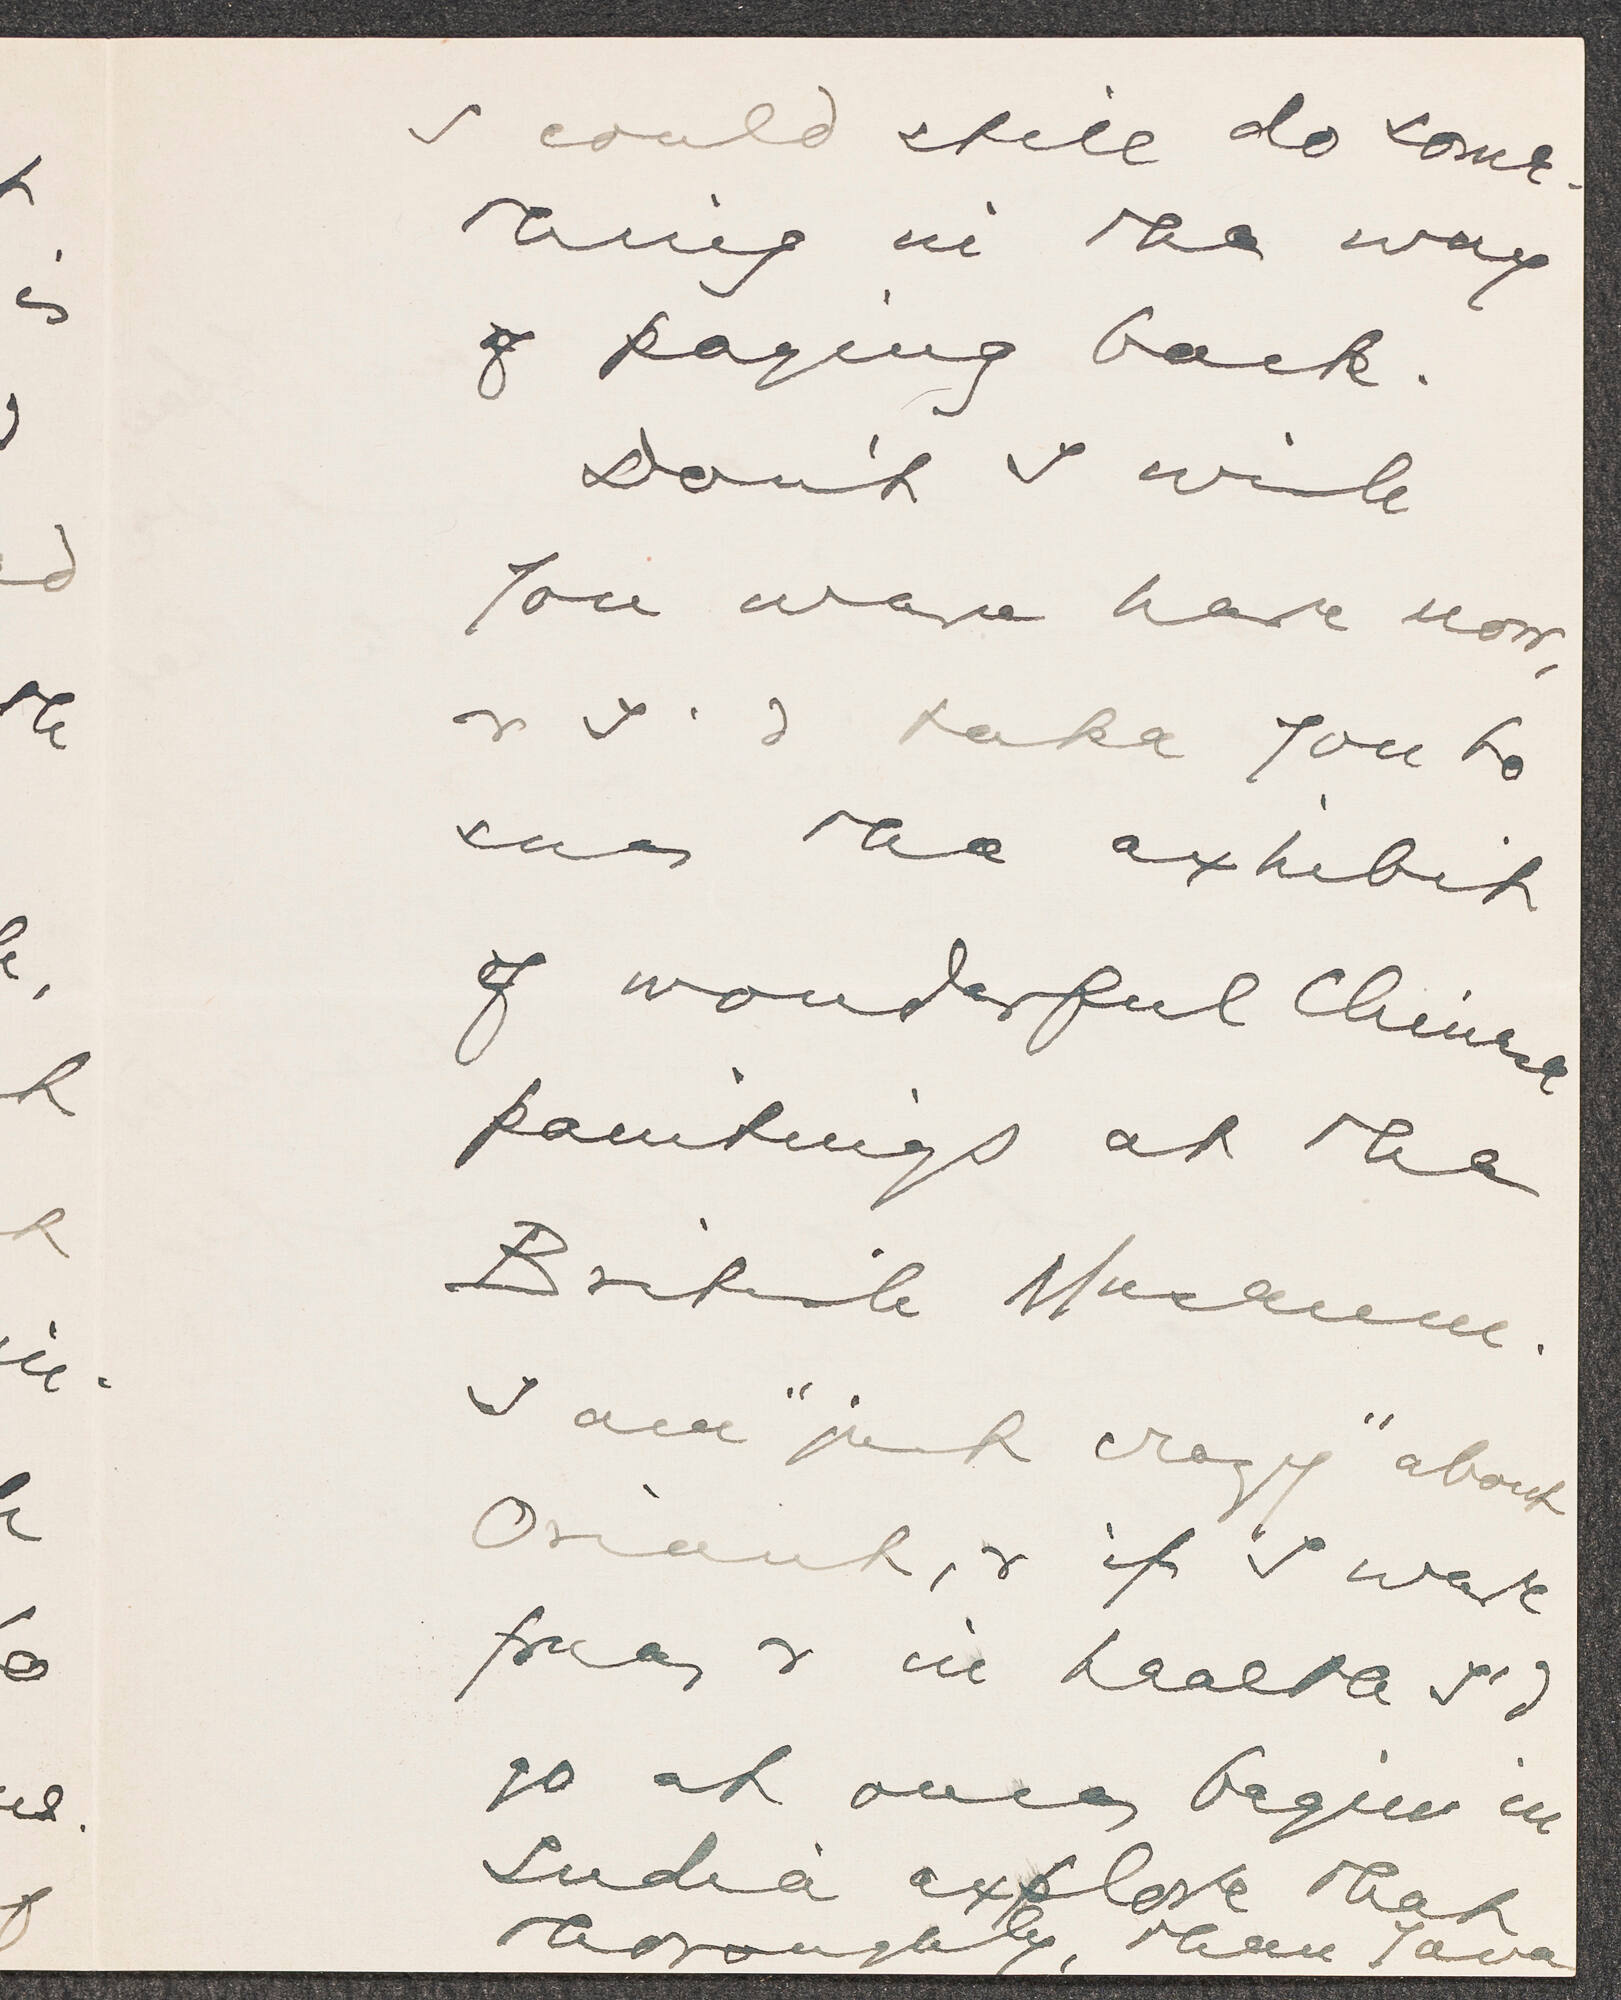 I could still do some-
thing in the way
of paying back.
Don't I wish
you were here now,
& I'd take you to
see the exhibit
of wonderful Chinese
paintings at the
British Museum.
I am "just crazy" about
Orient, & if I were
free & in health I'd
go at once, begin in
India explore that
thoroughly, then Java